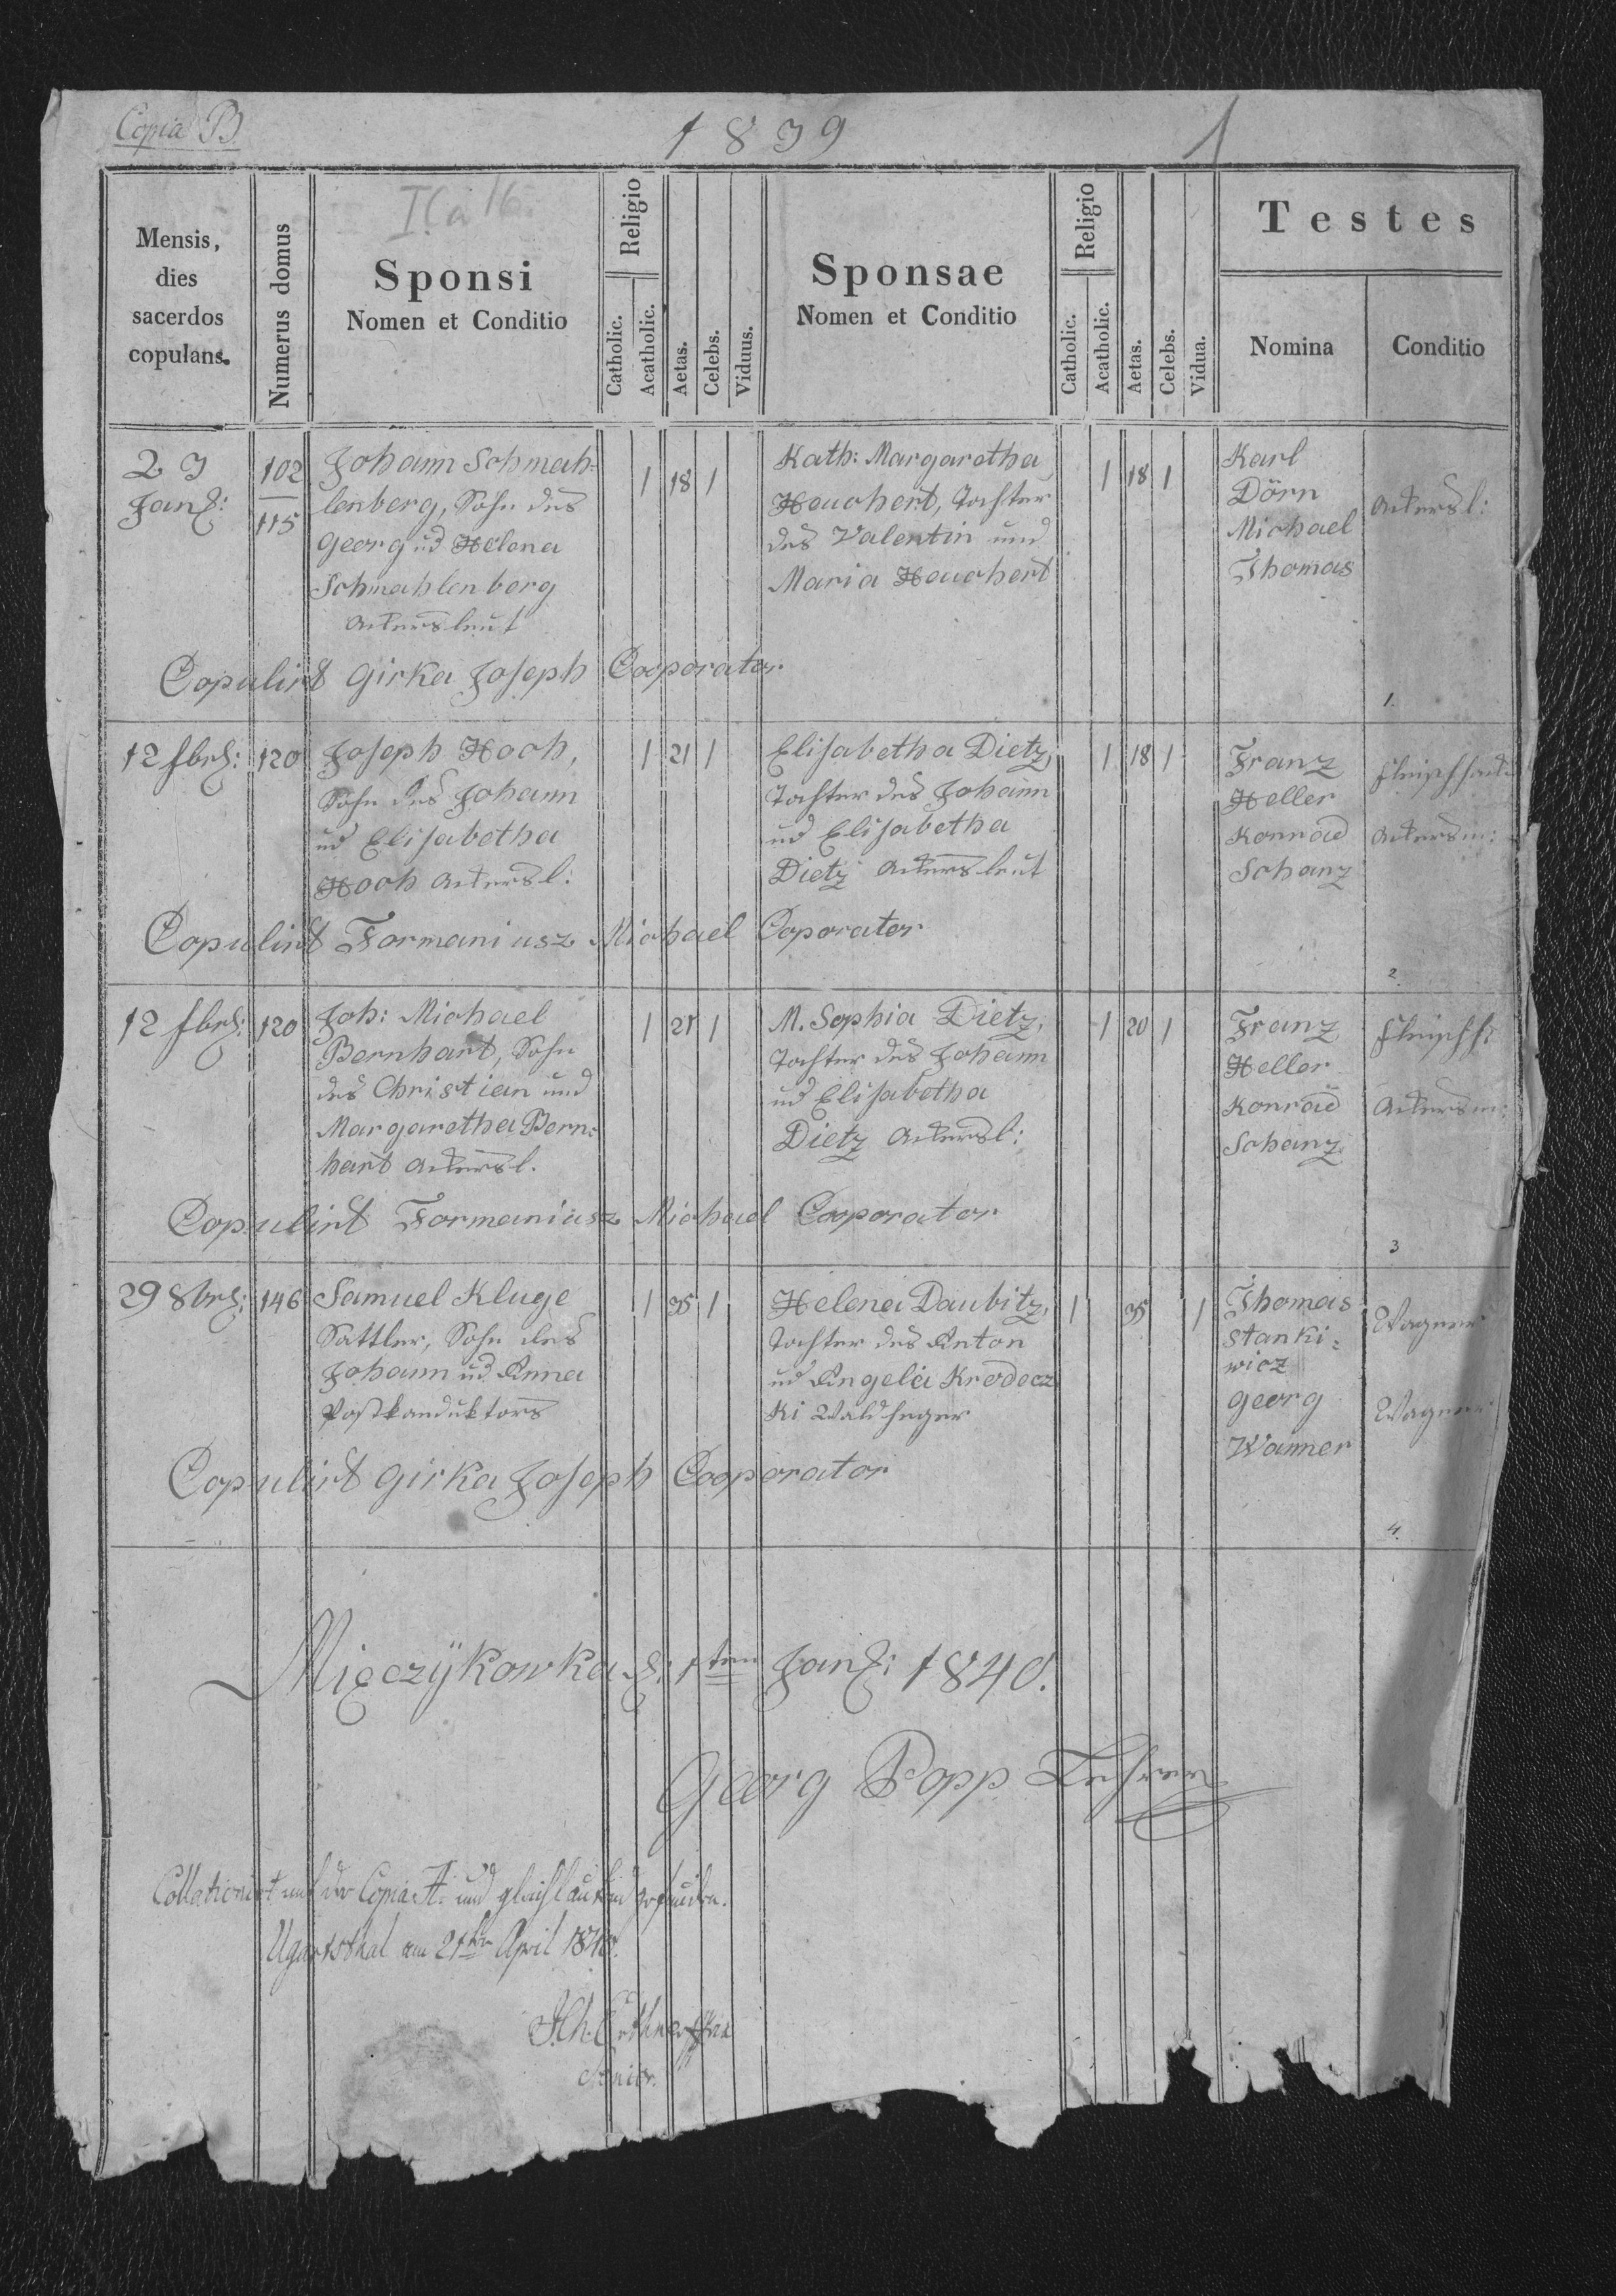 Copia B
1839
1
I.a 16.
Mensis,
dies
sacerdos
copulans.
Numerus domus
Sponsi
Nomen et Conditio
Religio
Catholic.
Acatholic.
Aetas.
Celebs.
Viduus.
Sponsae
Nomen et Conditio
Religio
Catholic.
Acatholic.
Aetas.
Celebs.
Vidua.
Testes
Nomina
Conditio
23
Janr:
102
115
Johann Schmah-
lenberg, Sohn des
Georg ud Helena
Schmahlenberg
Ackersleut
1 18 1
Kath: Margaretha
Houchert, Tochter
des Valentin und
Maria Houchert
1 18 1
Karl
Dörn
Michael
Thomas
Ackersl:
Copulirt Girka Joseph Cooporator
1.
12 fbrr:
120
Joseph Hoch,
Sohn des Johann
ud Elisabetha
Hoch Ackersl:
1 21 1
Elisabetha Dietz,
Tochter des Johann
ud Elisabetha
Dietz Ackersleut
1 18 1
Franz
Heller
Konrad
Schanz
Ackersm:
Copulirt Formaniusz Michael Coporator
2
12 fbrr:
120
Joh: Michael
Bernhart, Sohn
des Christian und
Margaretha Bern-
hart Ackersl.
1 21 1
M. Sophia Dietz,
Tochter des Johann
ud Elisabetha
Dietz Ackersl:
1 20 1
Franz
Heller
Konrad
Schanz
Fleischh:
Ackersm:
Copulirt Formaniusz Michael Cooporator
3
29 8brr:
146
Samuel Kluge
Sattler, Sohn des
Johann ud Anna
Postkanduktors
1 35 1
Helena Daubitz,
Tochter des Anton
ud Angela Krodocz
ki Waldheger
1 35 1
Thomas
Stanki-
wicz
Georg
Wanner
Wagner
Wagner
Copulirt Girka Joseph Cooporator
4.
Mięczÿkowka d: 1ten Janr: 1840.
Georg Popp Lehrer
Collationirt mit der Copia A. und gleichlautend gefunden.
Ugartsthal am 21ten April 1840.
Senior.